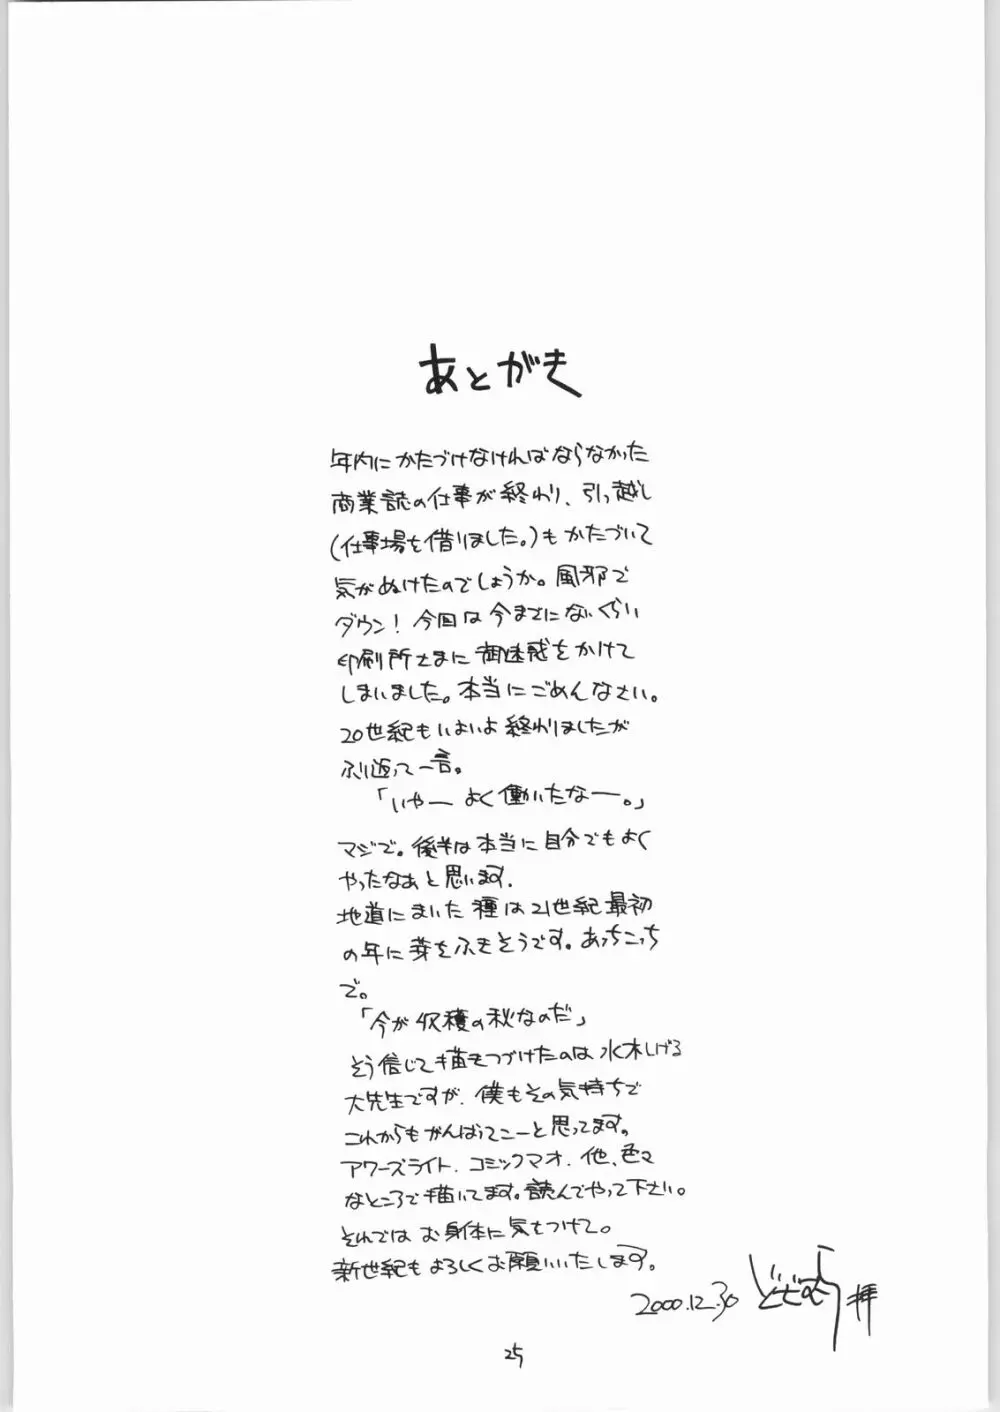 あとがき
年内にかたづけなければならなかった
商業誌の仕事が終わり、引っ越し
(仕事場を借りました。)もかたづいて
気がぬけたのでしょうか。風邪で
ダウン！今回は今までにないくらい
印刷所さまに御迷惑をかけて
しまいました。本当にごめんなさい。
20世紀もいよいよ終わりましたが
ふり返って一言。
「いやー よく働いたなー。」
マジで。後半は本当に自分でもよく
やったなぁと思います.
地道にまいた種は21世紀最初
の年に芽をふきそうです。あっちこっち
で。
「今が収穫の秋なのだ」
そう信じて描きつづけたのは水木しげる
大先生ですが、僕もその気持ちで
これからもがんばってこーと思ってます。
アワーズライト、コミックマオ、他、色々
なところで描いてます。読んでやって下さい。
それではお身体に気をつけて。
新世紀もよろしくお願いいたします。
2000.12.30 どざむら 拝
25